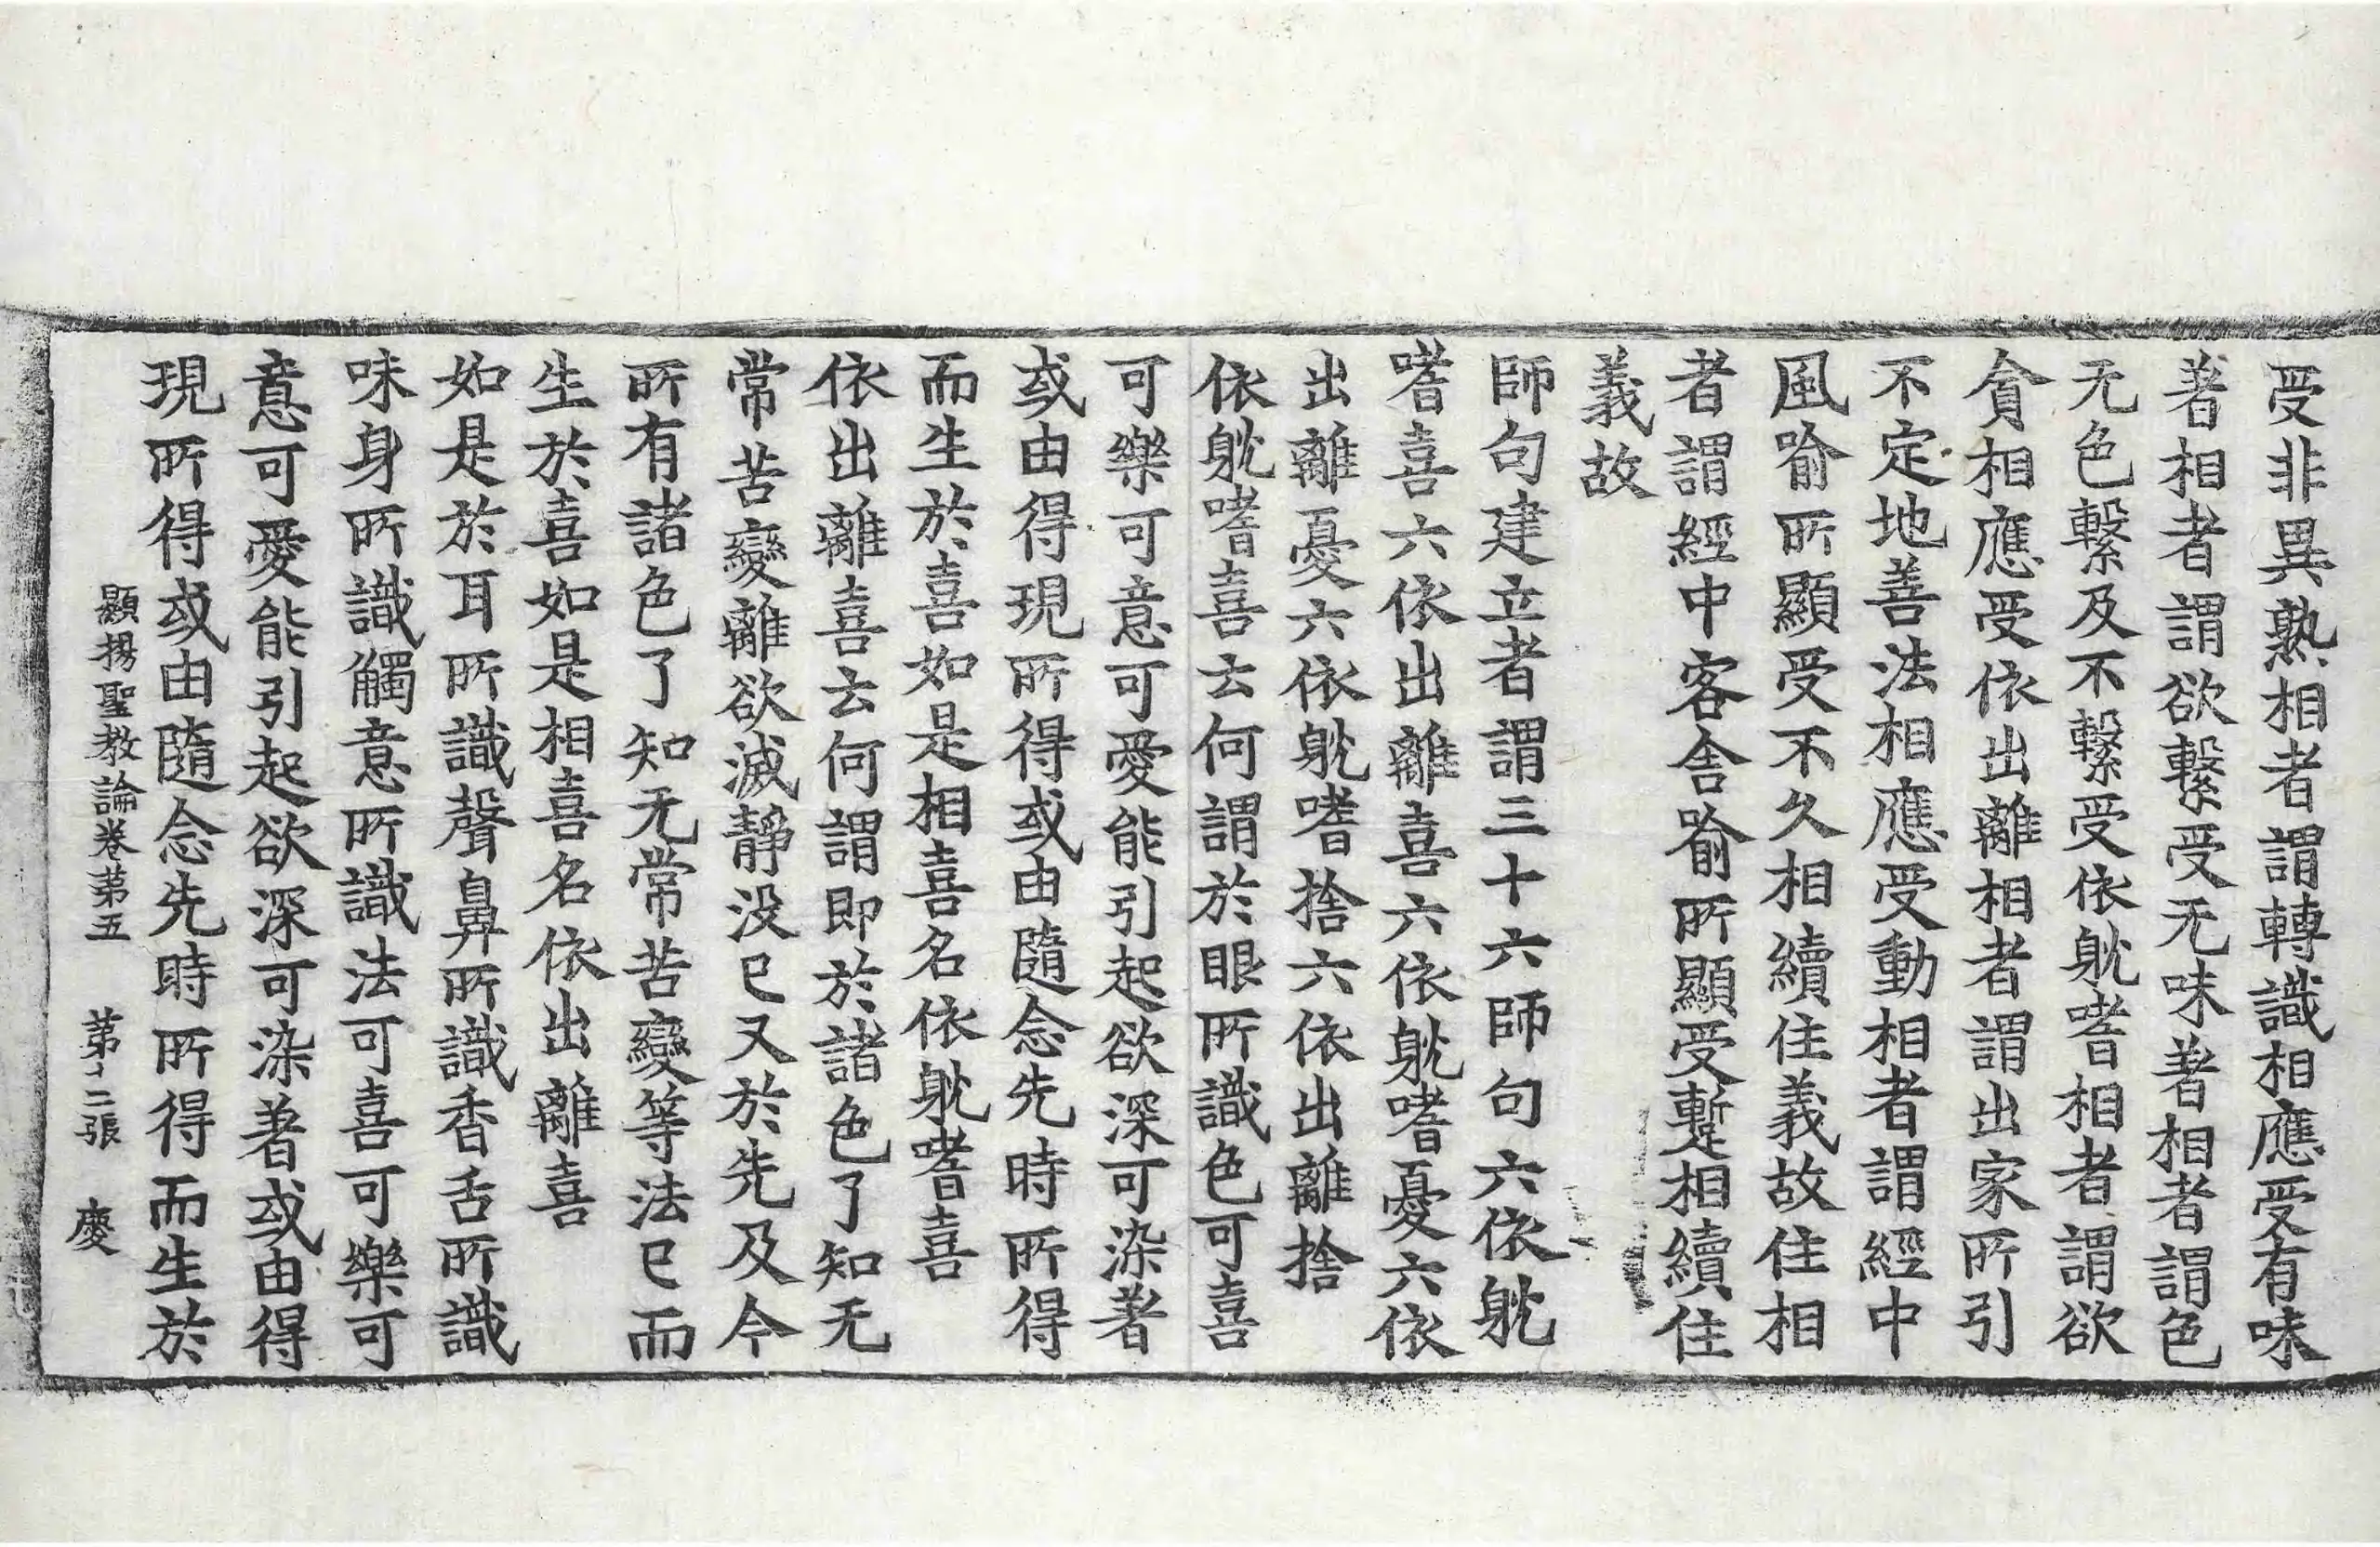 受非異熟相者謂轉識相應受有味
著相者謂欲繫受无味著相者謂色
无色繫及不繫受依躭嗜相者謂欲
貪相應受依出離相者謂出家所引
不定地善法相應受動相者謂經中
風喻所顯受不久相續住義故住相
者謂經中客舍喻所顯受蹔相續住
義故
師句建立者謂三十六師句六依躭
嗜喜六依出離喜六依躭嗜憂六依
出離憂六依躭嗜捨六依出離捨
依躭嗜喜云何謂於眼所識色可喜
可樂可意可愛能引起欲深可染著
或由得現所得或由隨念先時所得
而生於喜如是相喜名依躭嗜喜
依出離喜云何謂即於諸色了知无
常苦變離欲滅靜没已又於先及今
所有諸色了知无常苦變等法已而
生於喜如是相喜名依出離喜
如是於耳所識聲鼻所識香舌所識
味身所識觸意所識法可喜可樂可
意可愛能引起欲深可染著或由得
現所得或由隨念先時所得而生於
顯揚聖教論卷第五 第二張 慶